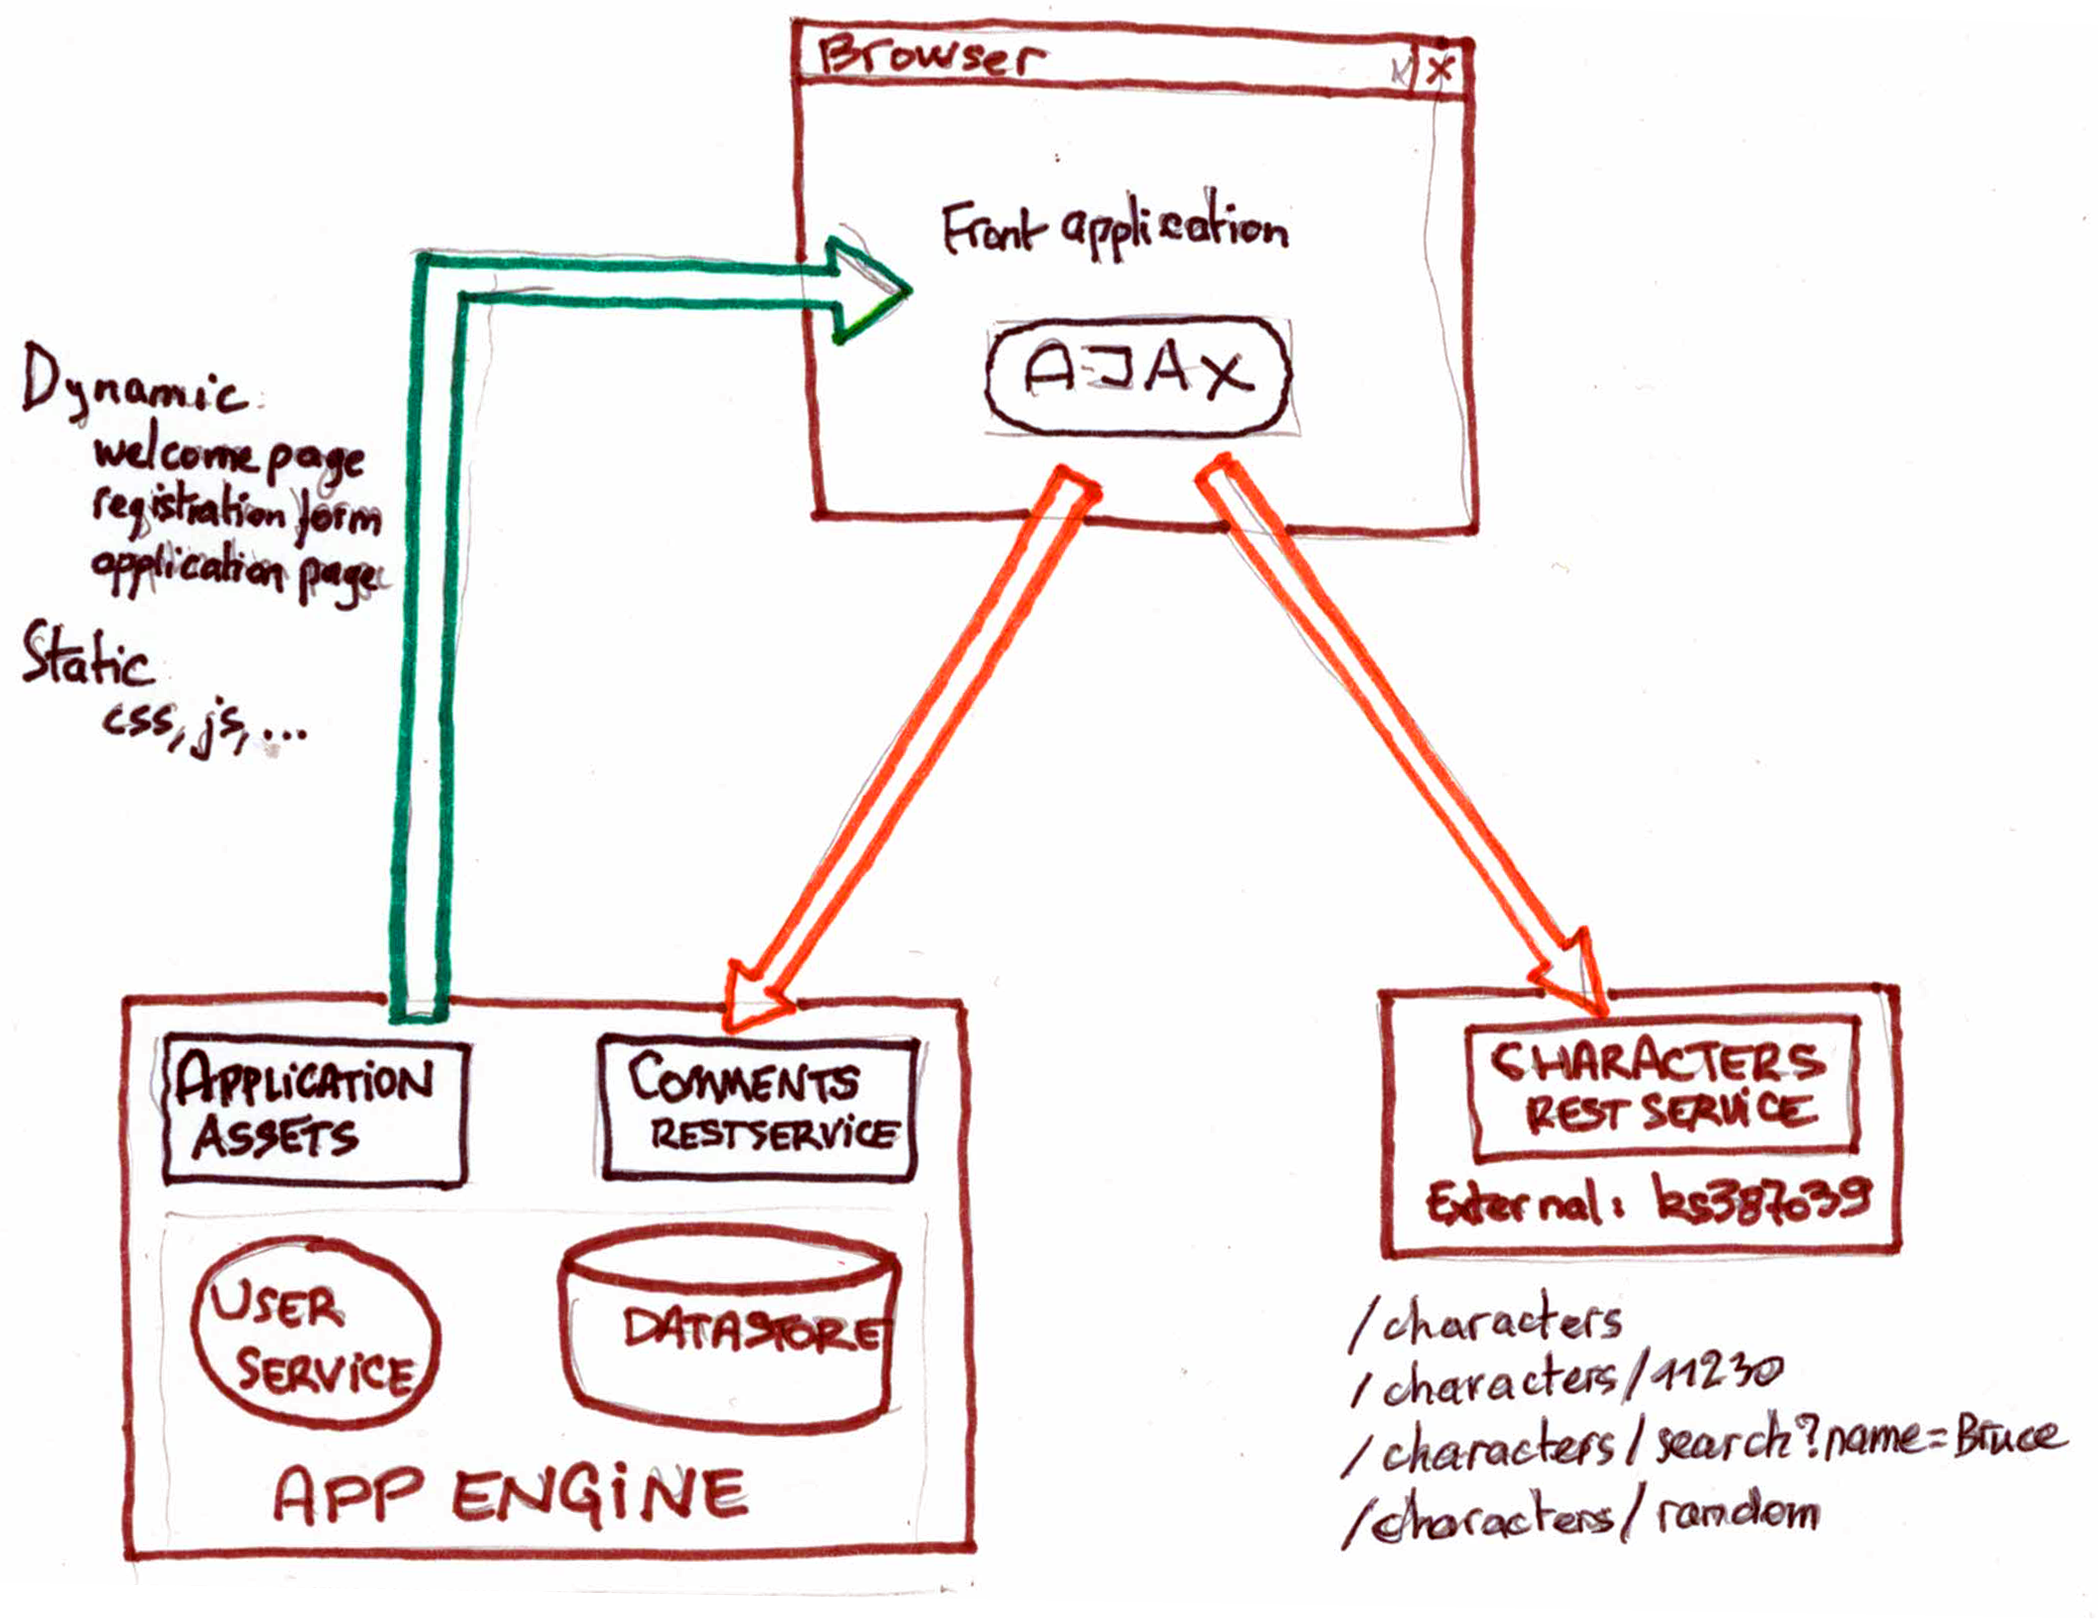 Browser
X
Front application
AJAX
Dynamic
welcome page
registration form
application page
Static
css, js, ...
APPLiCATiON
ASSETS
COMMENTS
RESTSERViCE
USER
SERViCE
DATASTORE
APP ENGiNE
CHARACTERS
REST SERViCE
External: ks387039
/characters
/characters/11230
/characters/search?name=Bruce
/characters/random